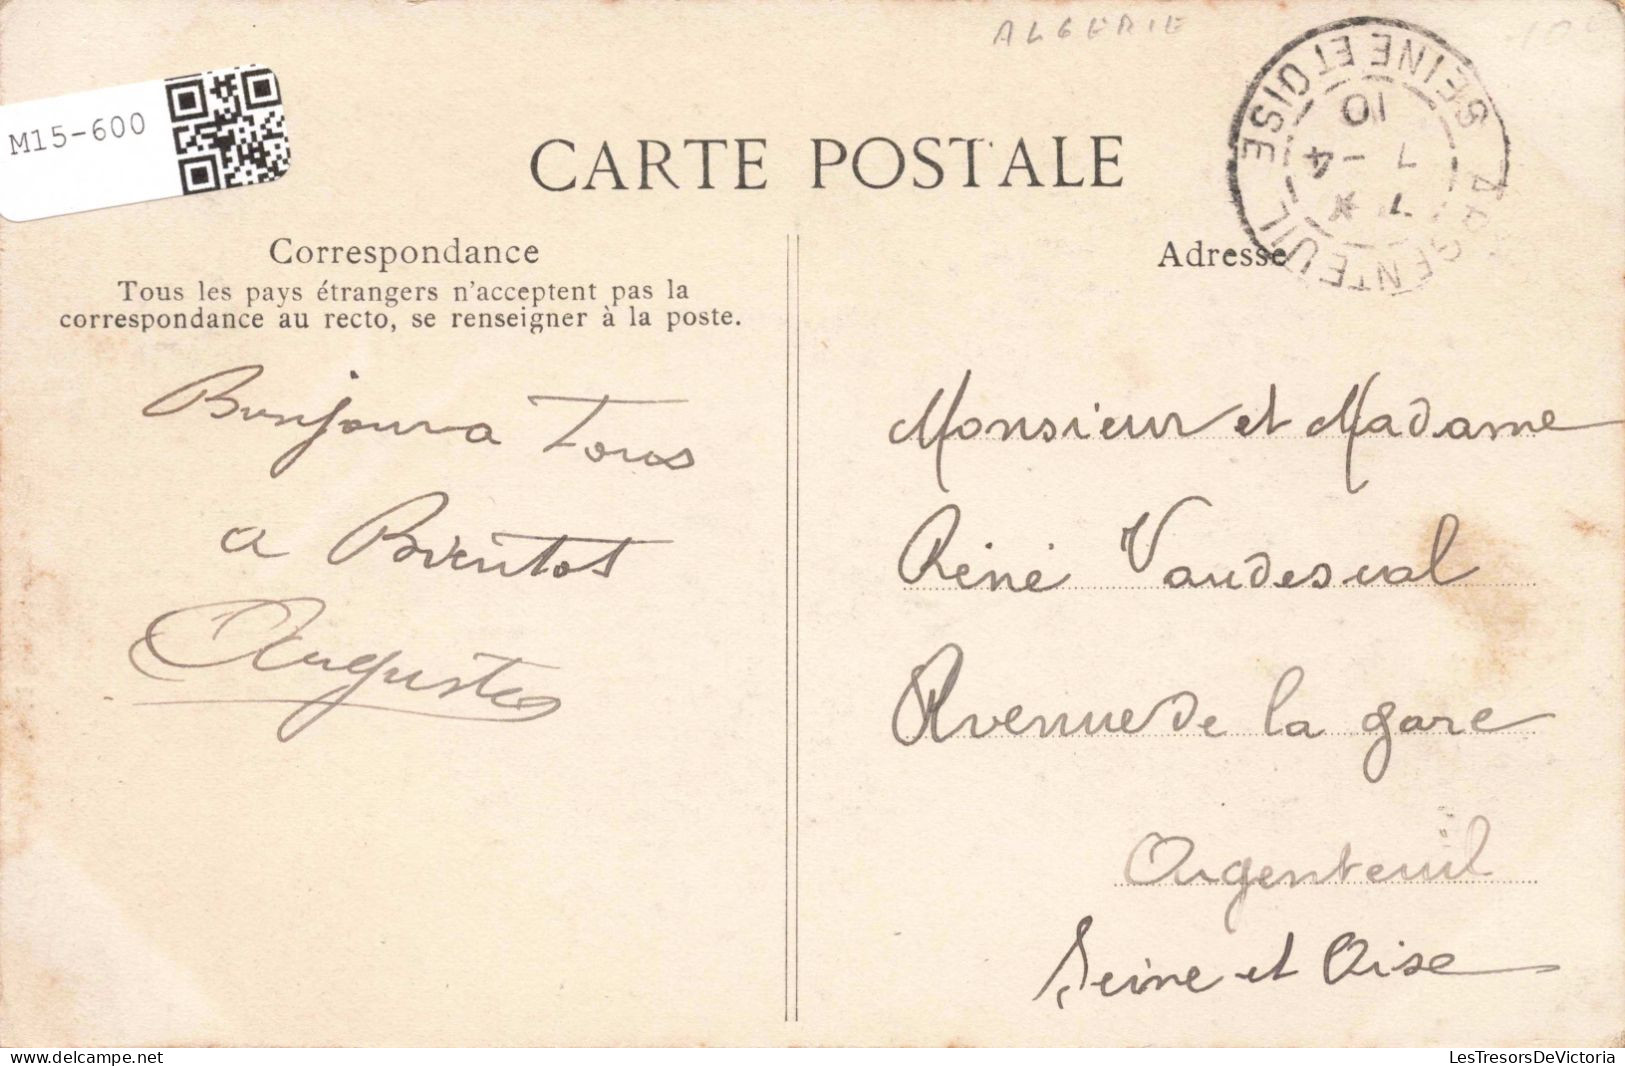 ALGERIE
M15-600
CARTE POSTALE
SEINE ET OISE
ARGENTEUIL
7 *
7 - 4
10
Correspondance
Tous les pays étrangers n'acceptent pas la
correspondance au recto, se renseigner à la poste.
Bonjour a Tous
a Bientot
Auguste
Adresse
Monsieur et Madame
Réné Vaudesval
Avenue de la gare
Argenteuil
Seine et Oise
delcampe.net
LesTresorsDeVictoria